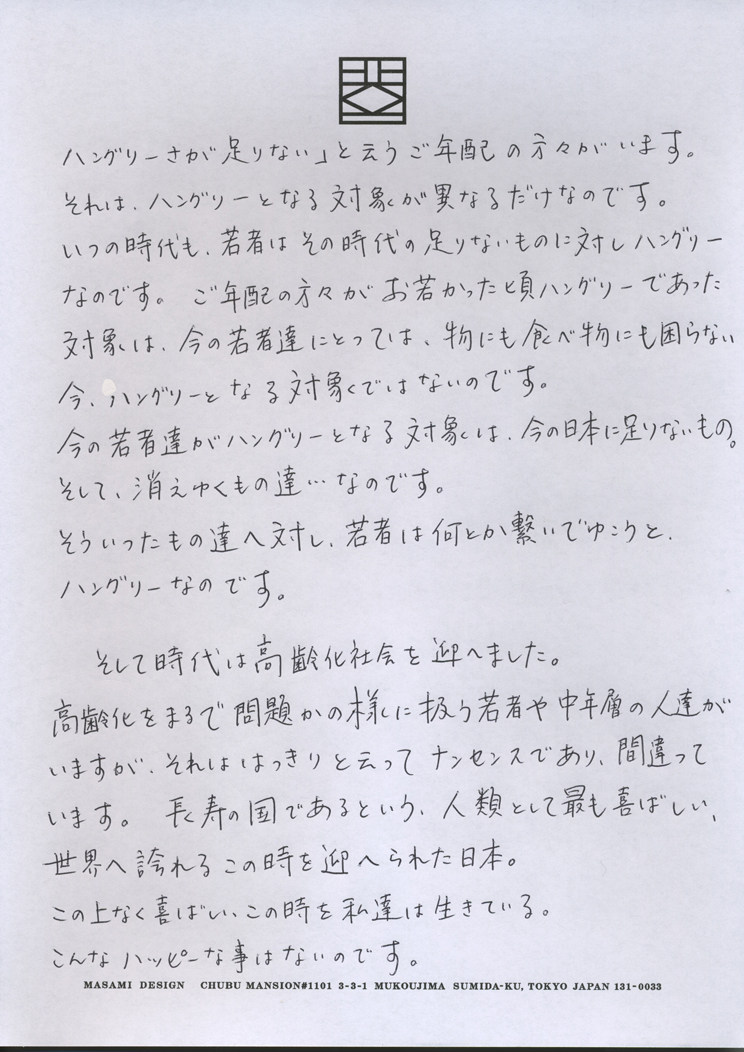 ハングリーさが足りない」と云うご年配の方々がいます。
それは、ハングリーとなる対象が異なるだけなのです。
いつの時代も、若者はその時代の足りないものに対しハングリー
なのです。 ご年配の方々がお若かった頃ハングリーであった
対象は、今の若者達にとっては、物にも食べ物にも困らない
今、ハングリーとなる対象ではないのです。
今の若者達がハングリーとなる対象は、今の日本に足りないもの。
そして、消えゆくもの達…なのです。
そういったもの達へ対し、若者は何とか繋いでゆこうと、
ハングリーなのです。
そして時代は高齢化社会を迎へました。
高齢化をまるで問題かの様に扱う若者や中年層の人達が
いますが、それははっきりと云ってナンセンスであり、間違って
います。 長寿の国であるという、人類として最も喜ばしい、
世界へ誇れるこの時を迎へられた日本。
この上なく喜ばしい、この時を私達は生きている。
こんなハッピーな事はないのです。
MASAMI DESIGN CHUBU MANSION#1101 3-3-1 MUKOUJIMA SUMIDA-KU, TOKYO JAPAN 131-0033